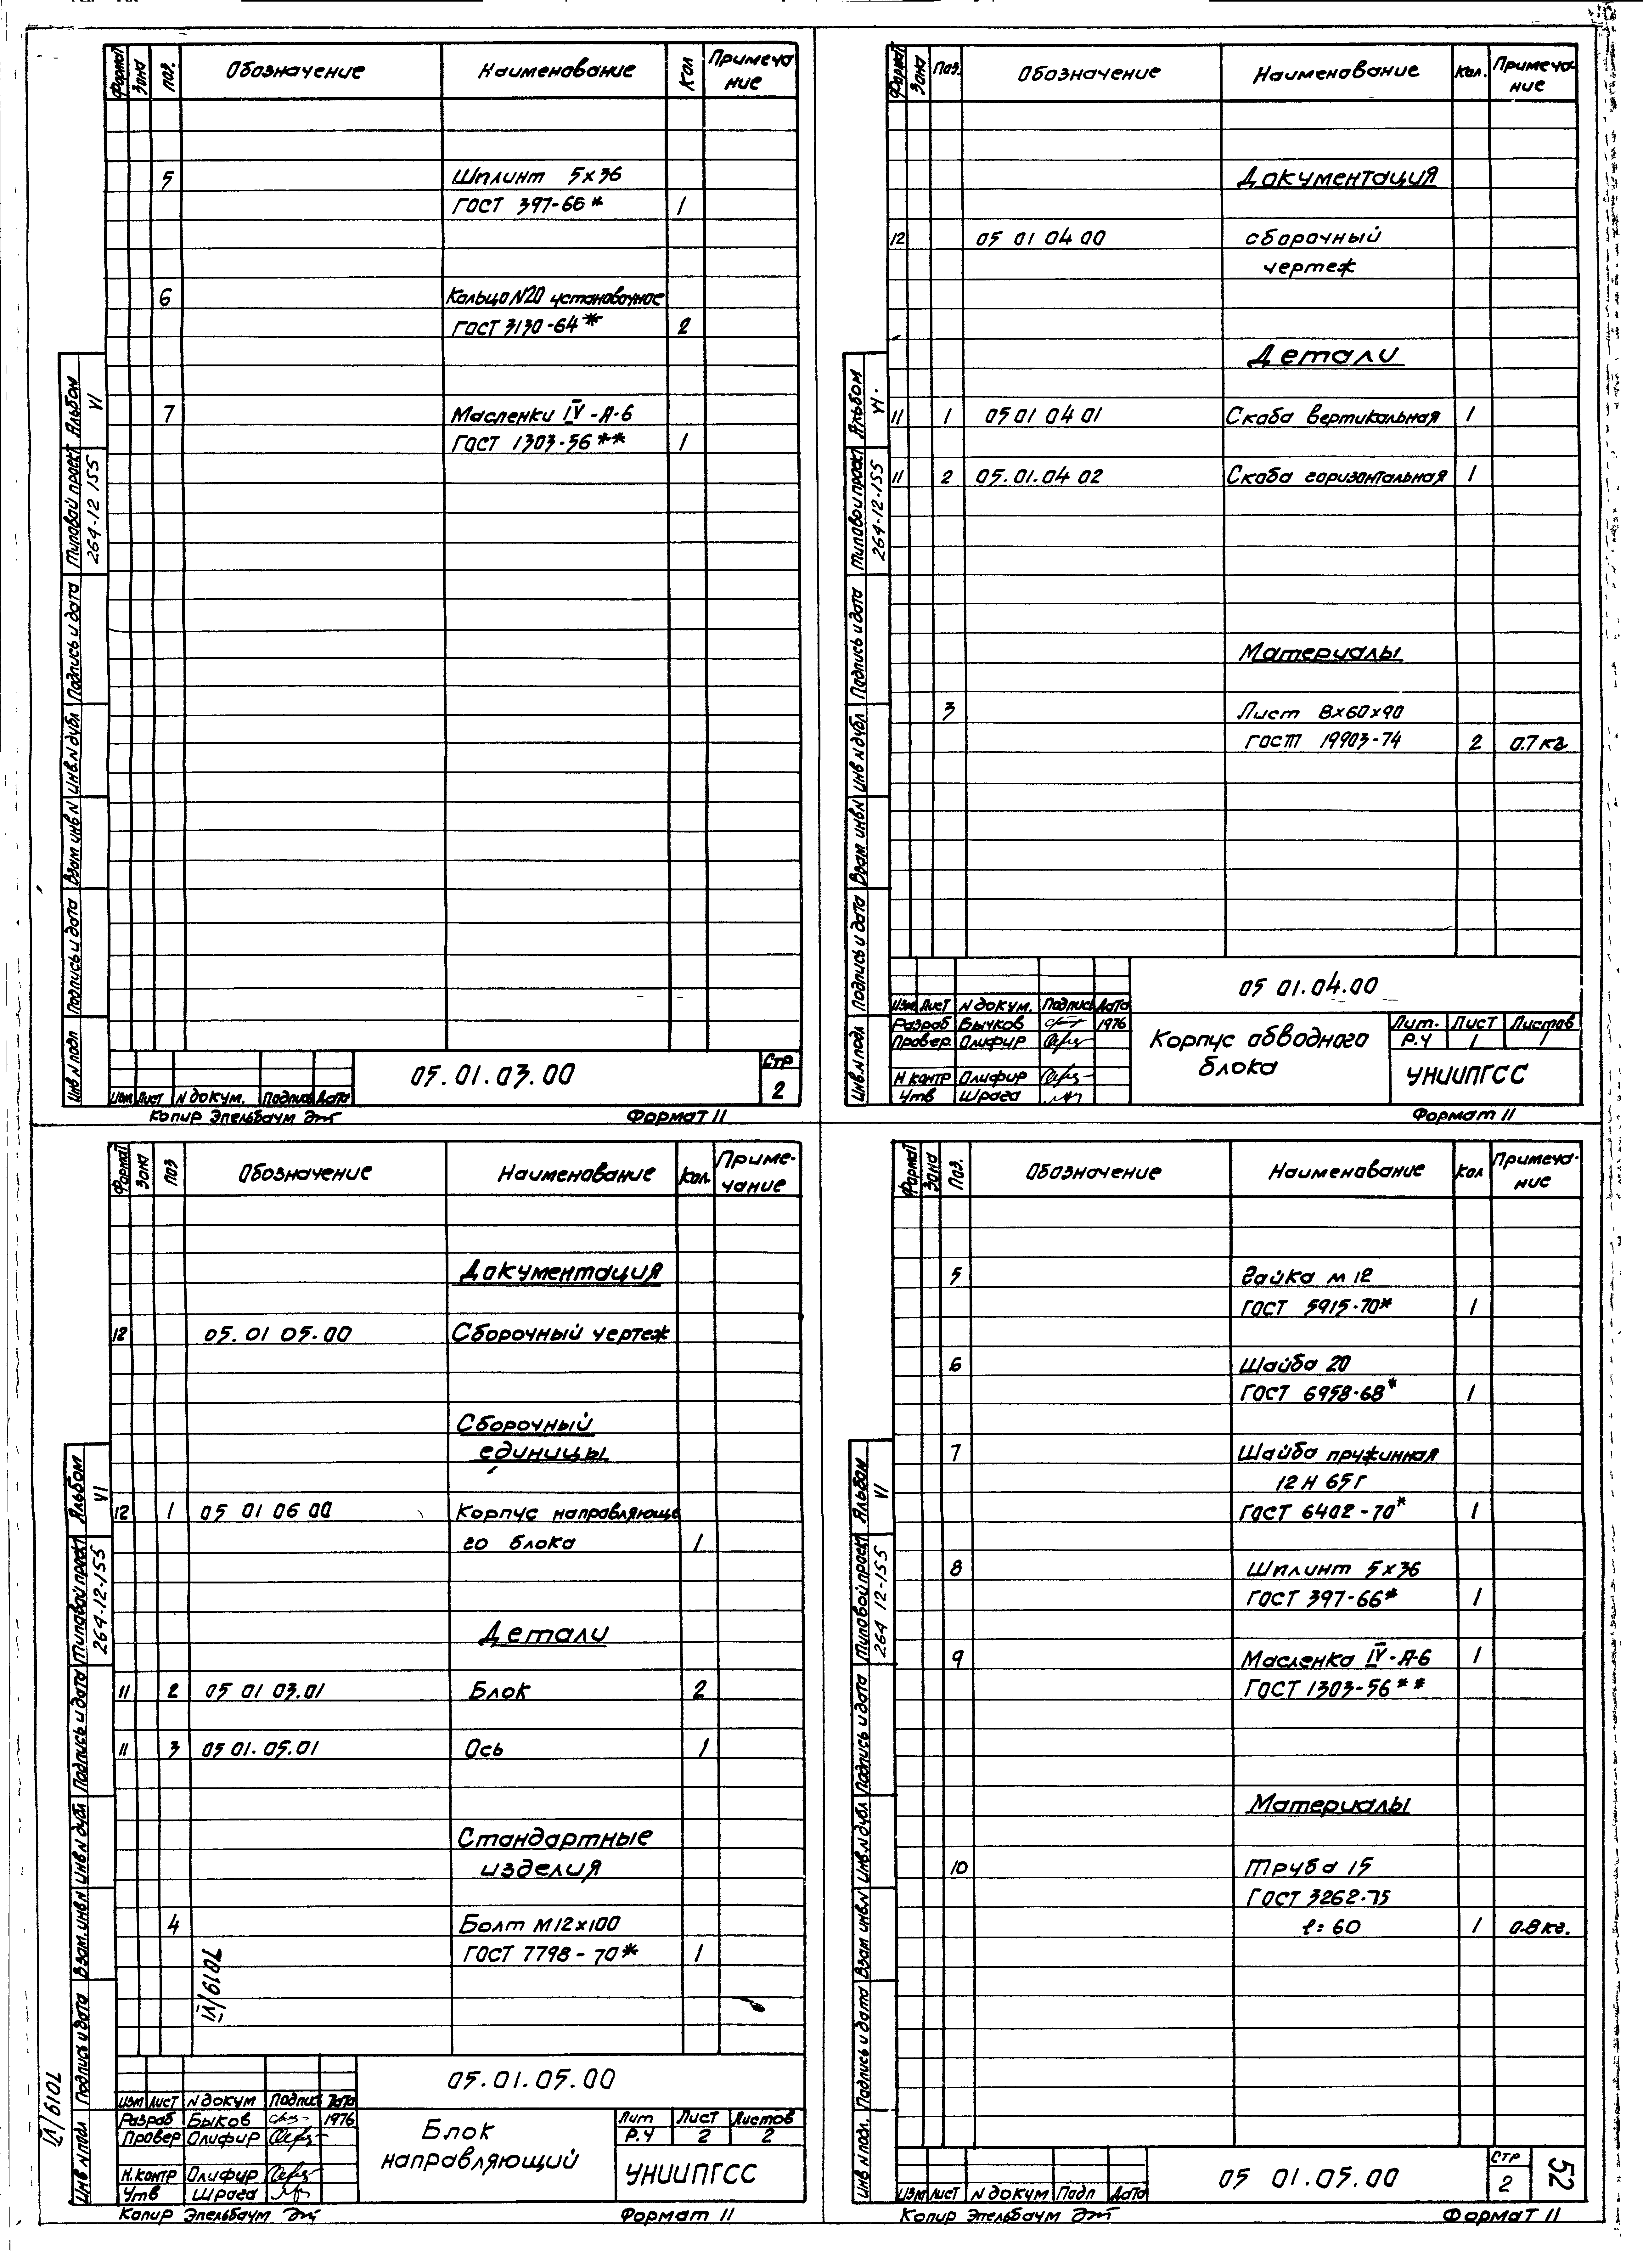 Формат Зона Поз. Обозначение Наименование Кол Примеча
ние
5 Шплинт 5x36
ГОСТ 397-66* 1
6 Кольцо N20 установочное
ГОСТ 3130-64* 2
7 Масленки IV-А-6
ГОСТ 1303-56** 1
Альбом VI
Типовой проект 264-12 155
Подпись и дата
Инв.N дубл
Взам инв N
Подпись и дата
Инв.N подл
Изм Лист N докум. Подпись Дата
05.01.03.00
Стр
2
Копир Эпельбаум
Формат 11
Формат Зона Поз. Обозначение Наименование Кол. Примеча-
ние
Документация
12 05 01 04 00 сборочный
чертеж
Детали
11 1 05 01 04 01 Скоба вертикальная 1
11 2 05.01.04 02 Скоба горизонтальная 1
Материалы
3 Лист 8x60x90
ГОСТ 19903-74 2 0.7 кг
Альбом VI
Типовой проект 264-12-155
Подпись и дата
Инв N дубл
Взам инв N
Подпись и дата
Инв.N подл
05 01.04.00
Изм Лист N докум. Подпись Дата
Разраб Бычков 1976
Провер. Олифир
Н контр Олифир
Утв Шрага
Корпус обводного
блока
Лит. Лист Листов
Р.Ч 1 1
УНИИПГСС
Формат 11
Формат Зона Поз Обозначение Наименование Кол. Приме-
чание
Документация
12 05.01 05.00 Сборочный чертеж
Сборочный
единицы
12 1 05 01 06 00 Корпус направляюще
го блока 1
Детали
11 2 05 01 03.01 Блок 2
11 3 05 01.05.01 Ось 1
Стандартные
изделия
4 Болт М12x100
ГОСТ 7798-70* 1
7019/VI
Альбом VI
Типовой проект 264-12-155
Подпись и дата
Инв.N дубл
Взам. инв N
Подпись и дата
Инв N подл
7019/VI
05.01.05.00
Изм Лист N докум Подпись Дата
Разраб Быков 1976
Провер Олифир
Н.контр Олифир
Утв Шрага
Блок
направляющий
Лит Лист Листов
Р.Ч 2 2
УНИИПГСС
Копир Эпельбаум
Формат 11
Формат Зона Поз. Обозначение Наименование Кол Примеча-
ние
5 Гайка м 12
ГОСТ 5915-70* 1
6 Шайба 20
ГОСТ 6958-68* 1
7 Шайба пружинная
12 Н 65Г
ГОСТ 6402-70* 1
8 Шплинт 5x36
ГОСТ 397-66* 1
9 Масленка IV-А-6 1
ГОСТ 1303-56**
Материалы
10 Труба 15
ГОСТ 3262-75
ℓ=60 1 0.8 кг.
Альбом VI
Типовой проект 264 12-155
Подпись и дата
Инв.N дубл
Взам инв.N
Подпись и дата
Инв N подл.
Изм Лист N докум Подп Дата
05 01.05.00
Стр
2
52
Копир Эпельбаум
Формат 11